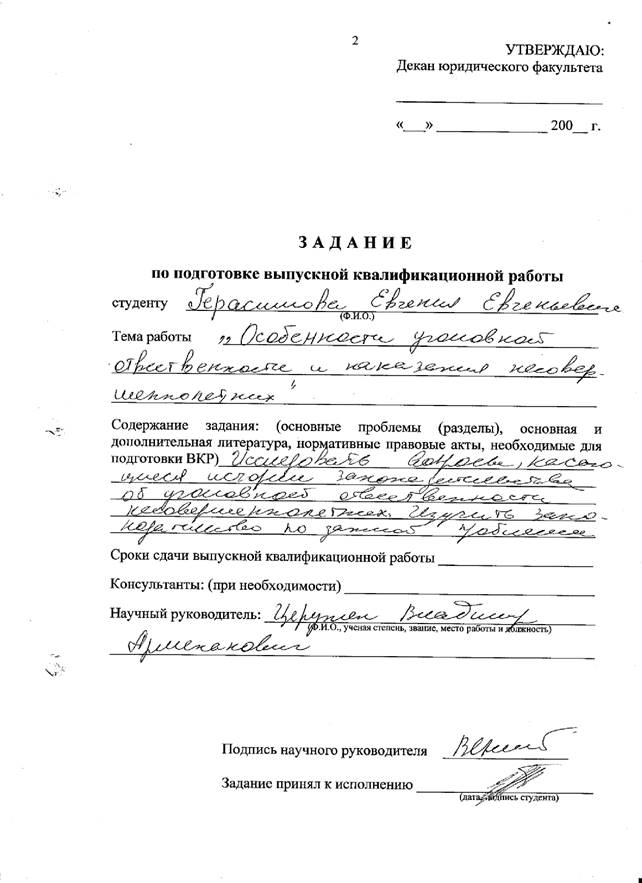 2
УТВЕРЖДАЮ:
Декан юридического факультета
«___» ________________ 200__ г.
З А Д А Н И Е
по подготовке выпускной квалификационной работы
студенту Герасимова Евгения Евгеньевича
(Ф.И.О.)
Тема работы „Особенности уголовной
ответственности и наказания несовер-
шеннолетних"
Содержание задания: (основные проблемы (разделы), основная и
дополнительная литература, нормативные правовые акты, необходимые для
подготовки ВКР) Исследовать вопросы, касаю-
щиеся истории законодательства
об уголовной ответственности
несовершеннолетних. Изучить зако-
нодательство по данной проблеме
Сроки сдачи выпускной квалификационной работы
Консультанты: (при необходимости)
Научный руководитель: Владимир
(Ф.И.О., ученая степень, звание, место работы и должность)
Арменакович
Подпись научного руководителя
Задание принял к исполнению
(дата, подпись студента)